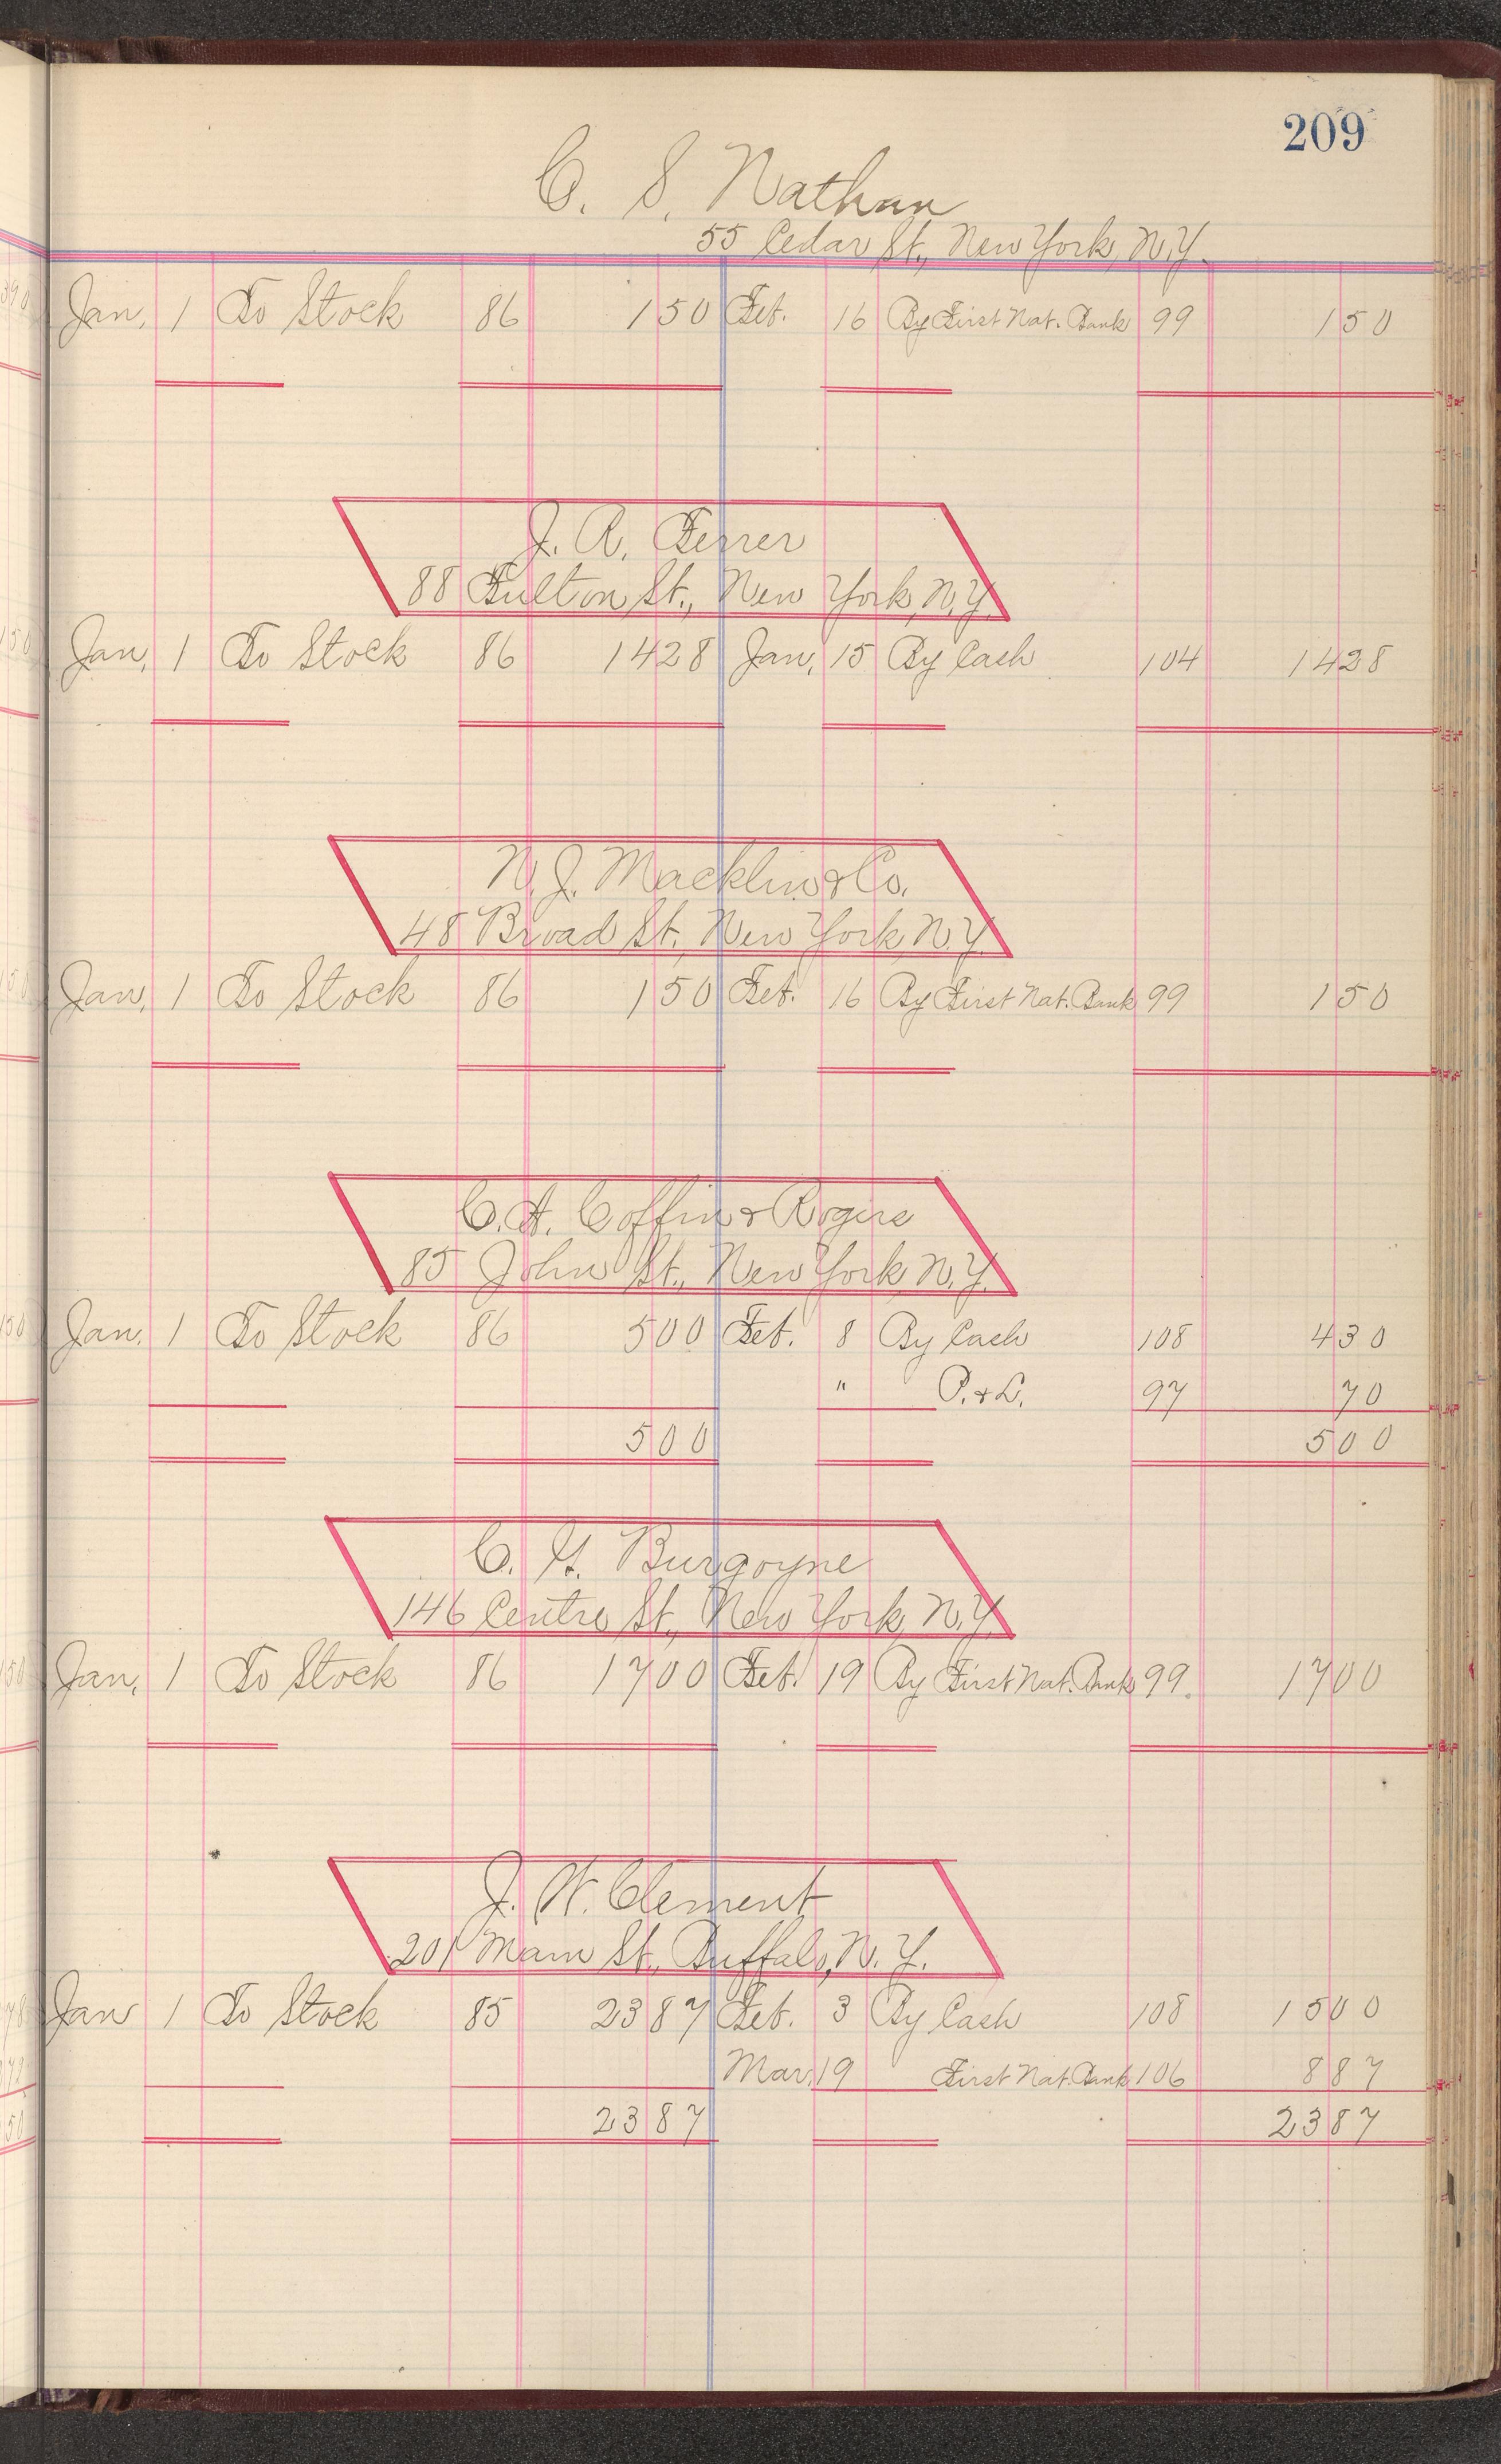 209
C. S. Nathan
55 Cedar St., New York, N.Y.
Jan. 1 To Stock 86 150 Feb. 16 By First Nat. Bank 99 150
J. A. Ferrer
88 Fulton St., New York, N.Y.
Jan. 1 To Stock 86 1428 Jan. 15 By Cash 104 1428
N. J. Macklin & Co.
48 Broad St., New York, N.Y.
Jan. 1 To Stock 86 150 Feb. 16 By First Nat. Bank 99 150
C. A. Coffin & Rogers
85 John St., New York, N.Y.
Jan. 1 To Stock 86 500 Feb. 8 By Cash 108 430
" P. & L. 97 70
500 500
C. G. Burgoyne
146 Centre St., New York, N.Y.
Jan. 1 To Stock 86 1700 Feb. 19 By First Nat. Bank 99. 1700
J. W. Clement
201 Main St., Buffalo, N.Y.
Jan 1 To Stock 85 2387 Feb. 3 By Cash 108 1500
Mar. 19 First Nat. Bank 106 887
2387 2387